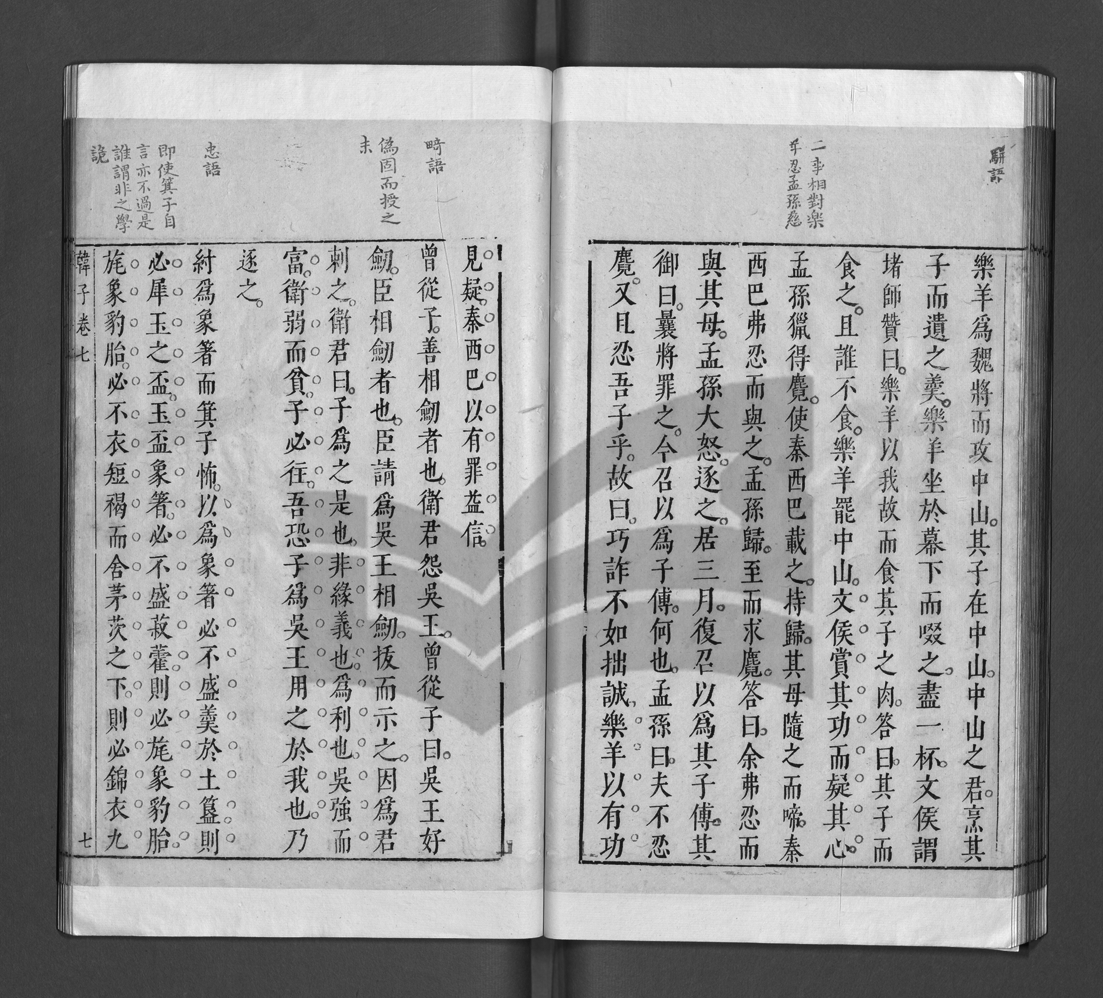 駢語
二事相對樂
羊忍孟孫慈
樂羊爲魏將而攻中山。其子在中山。中山之君。烹其
子而遺之羹。樂羊坐於幕下而啜之。盡一杯。文侯謂
堵師贊曰。樂羊以我故而食其子之肉。答曰。其子而
食之。且誰不食。樂羊罷中山。文侯賞其功而疑其心。
孟孫獵得麑。使秦西巴載之。持歸。其母隨之而啼。秦
西巴弗忍而與之。孟孫歸。至而求麑。答曰。余弗忍而
與其母。孟孫大怒。逐之。居三月。復召以爲其子傅。其
御曰。曩將罪之。今召以爲子傅。何也。孟孫曰。夫不忍
麑。又且忍吾子乎。故曰。巧詐不如拙誠。樂羊以有功
畸語
僞固而授之
未
忠語
即使箕子自
言亦不過是
誰謂非之學
詭
見疑。秦西巴以有罪益信。
曾從子。善相劒者也。衛君怨吳王。曾從子曰。吳王好
劒。臣相劒者也。臣請爲吳王相劒。拔而示之。因爲君
刺之。衛君曰。子爲之是也。非緣義也。爲利也。吳強而
富。衛弱而貧。子必往。吾恐子爲吳王用之於我也。乃
逐之。
紂爲象箸而箕子怖。以爲象箸必不盛羹於土簋。則
必犀玉之盃。玉盃象箸。必不盛菽藿。則必旄象豹胎。
旄象豹胎。必不衣短褐而舍茅茨之下。則必錦衣九
韓子卷七
七